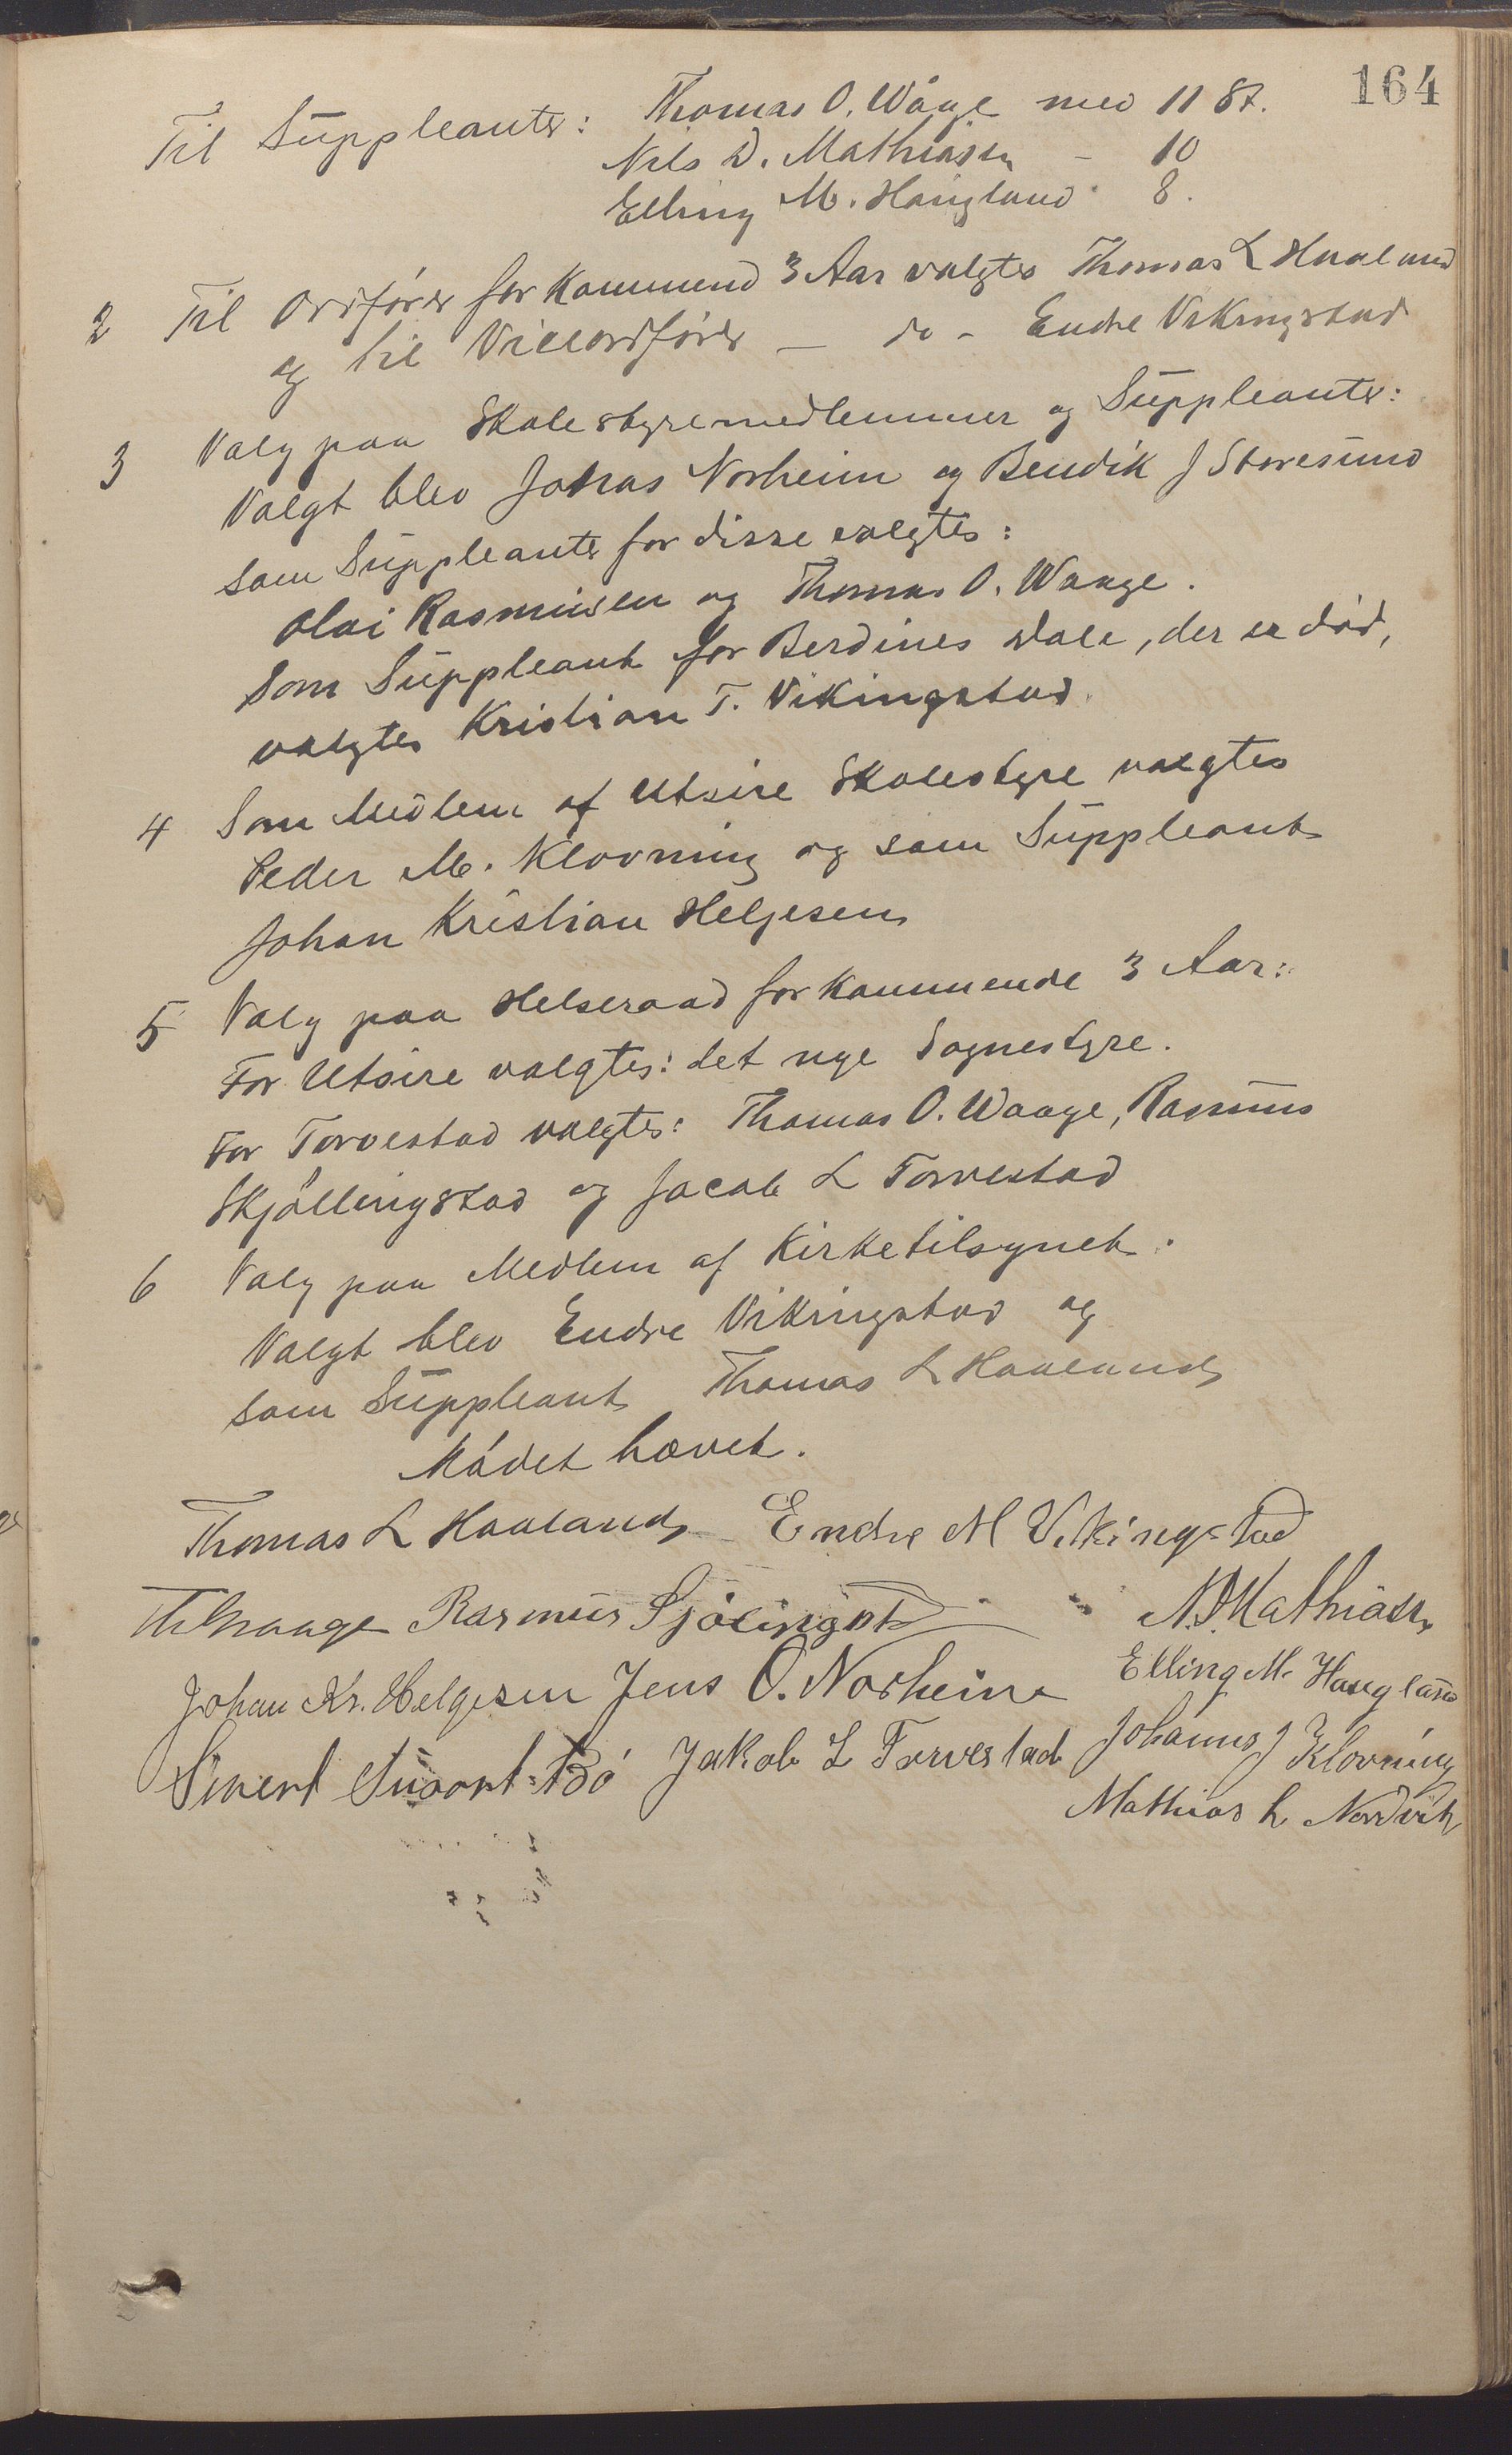 164
Til Suppleanter: Thomas O. Waage med 11 St.
Nils D. Mathiasen - 10
Elling M. Haugland 8.
2 Til Ordfører for kommend 3 Aar valgtes Thomas L Haaland
og til Viceordfører - do - Endre Vikingstad
3 Valg paa Skolestyremedlemmer og Suppleanter:
Valgt blev Jonas Norheim og Bendik J Storesund
som Suppleanter for disse valgtes:
Olai Rasmusen og Thomas O. Waage.
Som Suppleant for Berdines Dale, der er død,
valgtes Kristian T. Vikingstad.
4 Som Medlem af Utsire Skolestyre valgtes
Peder M. Klovning og som Suppleant
Johan Kristian Helgesen
5 Valg paa Helseraad for kommende 3 Aar:
For Utsire valgtes: det nye Sognestyre.
For Torvestad valgtes: Thomas O. Waage, Rasmus
Skjøllingstad og Jacob L Torvestad
6 Valg paa Medlem af Kirketilsynet:
Valgt blev Endre Vikingstad og
som Suppleant Thomas L Haaland
Mødet hævet.
Thomas L Haaland Endre M Vikingstad
Th Waage Rasmus Sjølingst N. D. Mathiasen
Johan Kr. Helgesen Jens O. Norheim Elling M. Haugland
Sivert Bø Jakob L Torvestad Johannes J Klovning
Mathias L Nordvik